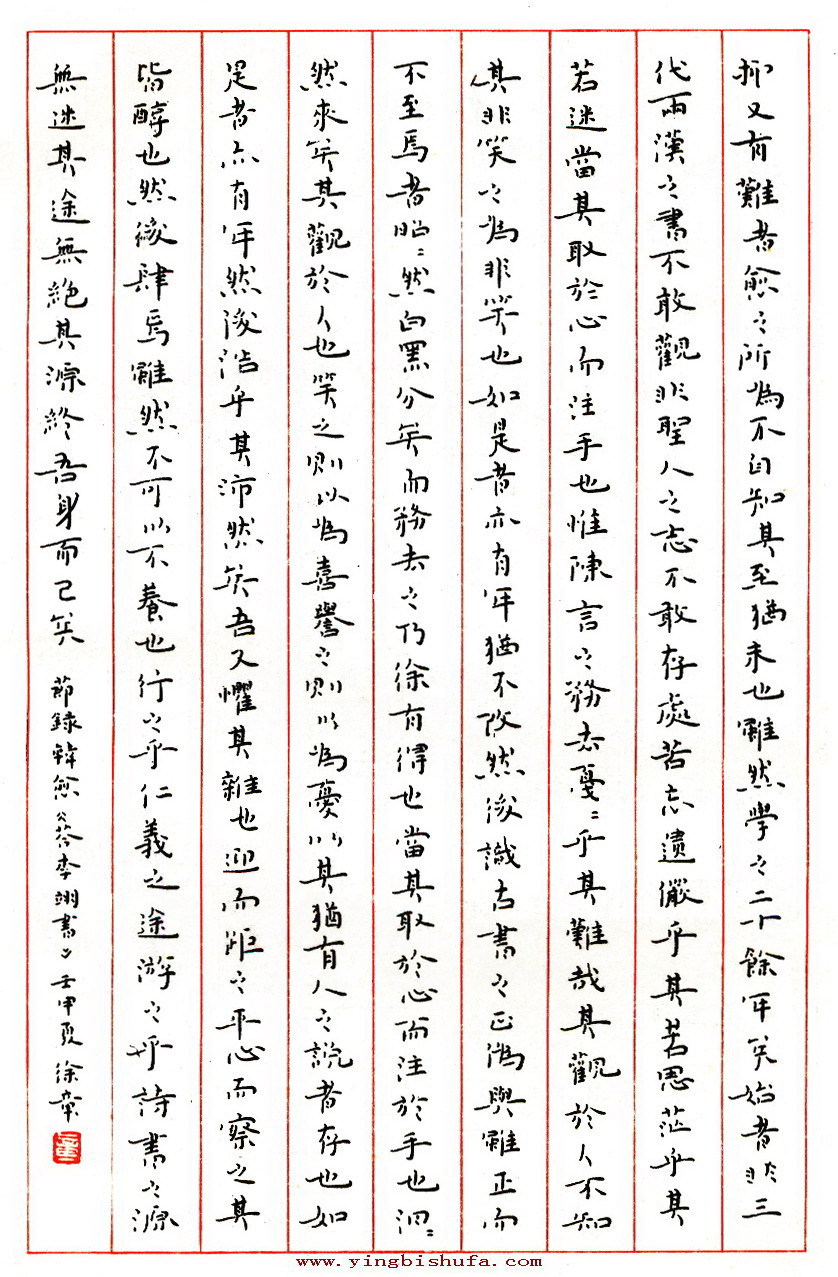 抑又有難者愈之所為不自知其至猶未也雖然學之二十餘年矣始者非三
代兩漢之書不敢觀非聖人之志不敢存處若忘遺儼乎其若思茫乎其
若迷當其取於心而注手也惟陳言之務去戛〻乎其難哉其觀於人不知
其非笑之為非笑也如是者亦有年猶不改然後識古書之正偽與雖正而
不至焉者昭〻然白黑分矣而務去之乃徐有得也當其取於心而注於手也汩〻
然來矣其觀於人也笑之則以為喜譽之則以為憂以其猶有人之說者存也如
是者亦有年然後浩乎其沛然矣吾又懼其雜也迎而距之平心而察之其
皆醇也然後肆焉雖然不可以不養也行之乎仁義之途游之乎詩書之源
無迷其途無絕其源終吾身而已矣 節錄韓愈《答李翊書》壬申夏徐章
章
www.yingbishufa.com